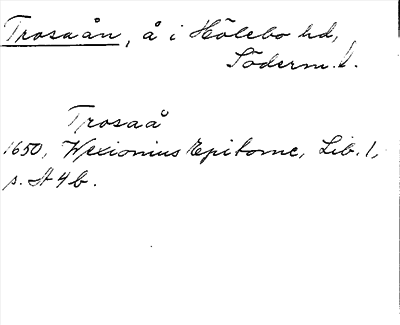 Trosaån, å i Hölebo hd,
Söderm. l.
Trosaå
1650, Wexionius Epitome, Lib. 1,
s. A 4 b.